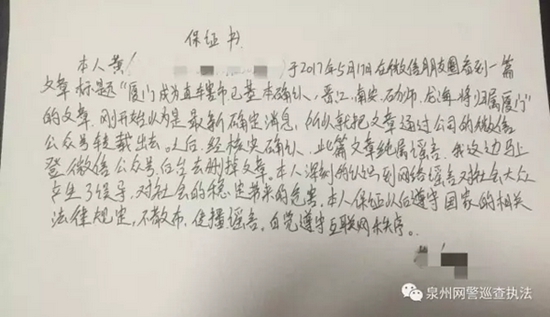 保证书
本人黄 于2017年5月17日在微信朋友圈看到一篇
文章标题"厦门成为直辖市已基本确认、晋江、南安、石狮、龙海将归属厦门"
的文章,刚开始以为是最新确定消息,所以就把文章通过公司的微信
公众号转载出去。以后经核实确认、此篇文章纯属谣言。我这边马上
登微信公众号后台去删掉文章。本人深刻的认识到网络谣言对社会大众
产生了误导,对社会的稳定带来的危害,本人保证以后遵守国家的相关
法律规定,不散布、传播谣言,自觉遵守互联网秩序。
泉州网警巡查执法